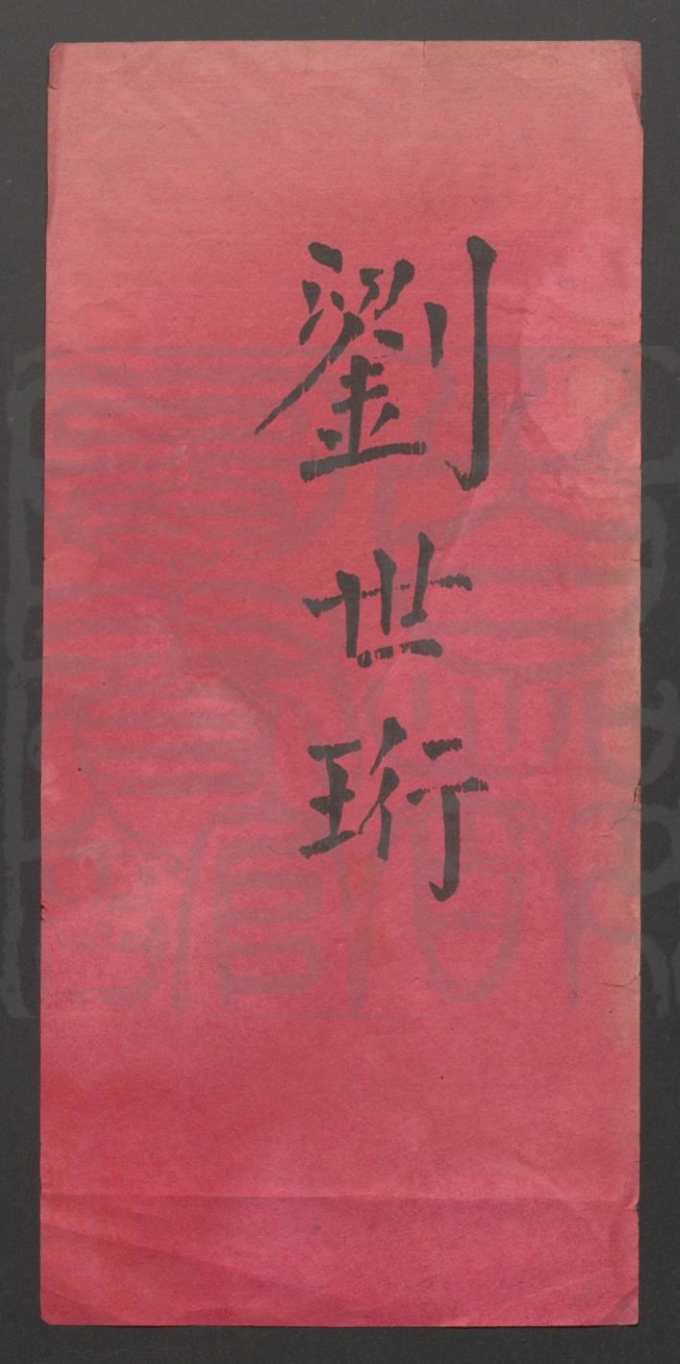 劉世珩